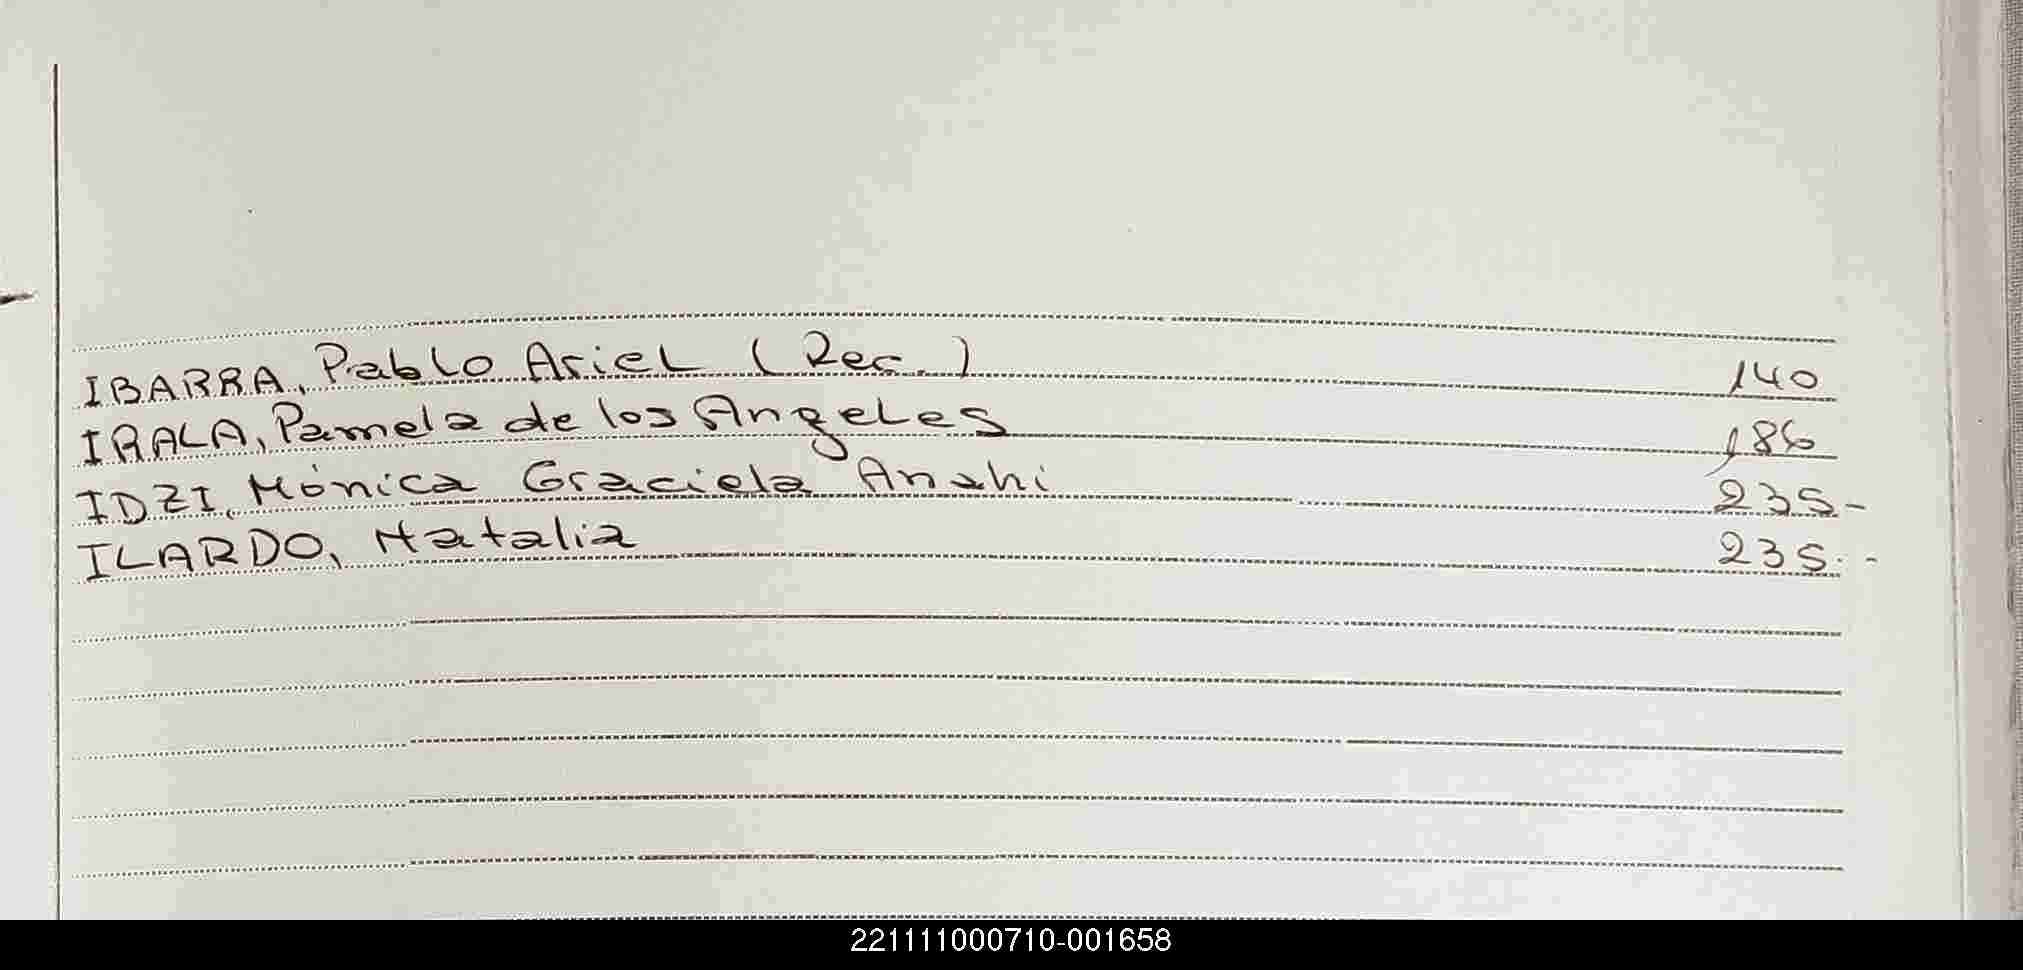 IBARRA, Pablo Ariel (Rec.) 140
IRALA, Pamela de los Angeles 186
IDZI, Mónica Graciela Anahi 235-
ILARDO, Natalia 235-
221111000710-001658